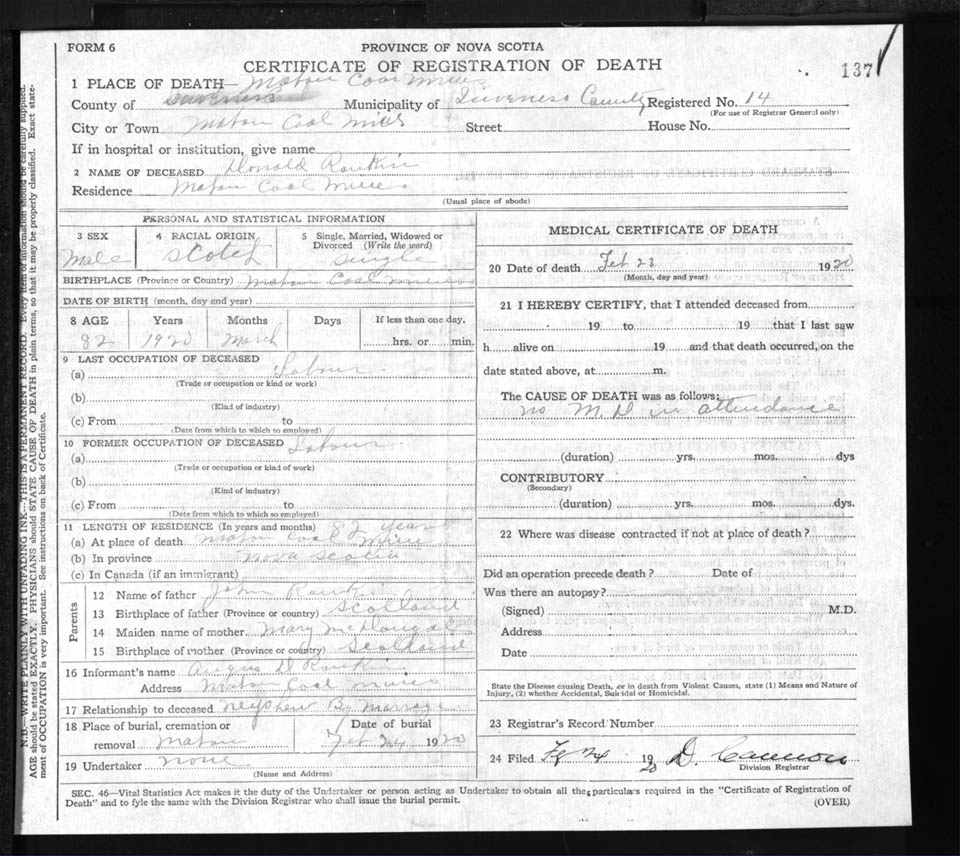 FORM 6
PROVINCE OF NOVA SCOTIA
CERTIFICATE OF REGISTRATION OF DEATH
137
1 PLACE OF DEATH— Mabou Coal Mines
County of Inverness Municipality of Inverness County Registered No. 14
(For use of Registrar General only)
City or Town Mabou Coal Mines Street House No.
If in hospital or institution, give name
2 NAME OF DECEASED Donald Rankin
Residence Mabou Coal Mines
(Usual place of abode)
PERSONAL AND STATISTICAL INFORMATION
3 SEX 4 RACIAL ORIGIN 5 Single, Married, Widowed or Divorced (Write the word)
Male Scotch Single
BIRTHPLACE (Province or Country) Mabou Coal Mines
DATE OF BIRTH (month, day and year)
8 AGE Years Months Days If less than one day,
82 1920 March hrs. or min.
9 LAST OCCUPATION OF DECEASED
(a) Labour
(Trade or occupation or kind or work)
(b)
(Kind of industry)
(c) From to
(Date from which to which so employed)
10 FORMER OCCUPATION OF DECEASED
(a) Labour
(Trade or occupation or kind of work)
(b)
(Kind of industry)
(c) From to
(Date from which to which so employed)
11 LENGTH OF RESIDENCE (In years and months) 82 year
(a) At place of death Mabou Coal Mines
(b) In province Nova Scotia
(c) In Canada (if an immigrant)
Parents
12 Name of father John Rankin
13 Birthplace of father (Province or country) Scotland
14 Maiden name of mother Mary McDougal
15 Birthplace of mother (Province or country) Scotland
16 Informant's name Angus D Rankin
Address Mabou Coal Mines
17 Relationship to deceased Neyphew By Marrage
18 Place of burial, cremation or removal Mabou
Date of burial
Feb 24 1920
19 Undertaker None
(Name and Address)
MEDICAL CERTIFICATE OF DEATH
20 Date of death Feb 23 1920
(Month, day and year)
21 I HEREBY CERTIFY, that I attended deceased from
19 to 19 that I last saw
h alive on 19 and that death occurred, on the
date stated above, at m.
The CAUSE OF DEATH was as follows:
no M D in attendance
(duration) yrs. mos. dys
CONTRIBUTORY
(Secondary)
(duration) yrs. mos. dys.
22 Where was disease contracted if not at place of death?
Did an operation precede death? Date of
Was there an autopsy?
(Signed) M.D.
Address
Date
State the Disease causing Death, or in death from Violent Causes, state (1) Means and Nature of
Injury, (2) whether Accidental, Suicidal or Homicidal.
23 Registrar's Record Number
24 Filed 1920 D. Cameron
Division Registrar
SEC. 46—Vital Statistics Act makes it the duty of the Undertaker or person acting as Undertaker to obtain all the particulars required in the "Certificate of Registration of
Death" and to fyle the same with the Division Registrar who shall issue the burial permit.
(OVER)
N.B.—WRITE PLAINLY WITH UNFADING INK—THIS IS A PERMANENT RECORD. Every item of information should be carefully supplied.
AGE should be stated EXACTLY. PHYSICIANS should STATE CAUSE OF DEATH in plain terms, so that it may be properly classified. Exact state-
ment of OCCUPATION is very important. See instructions on back of Certificate.